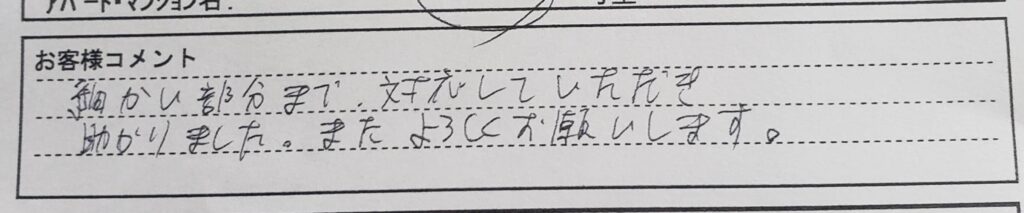 アパート・マンション名:
お客様コメント
細かい部分まで、対応していただき
助かりました。またよろしくお願いします。